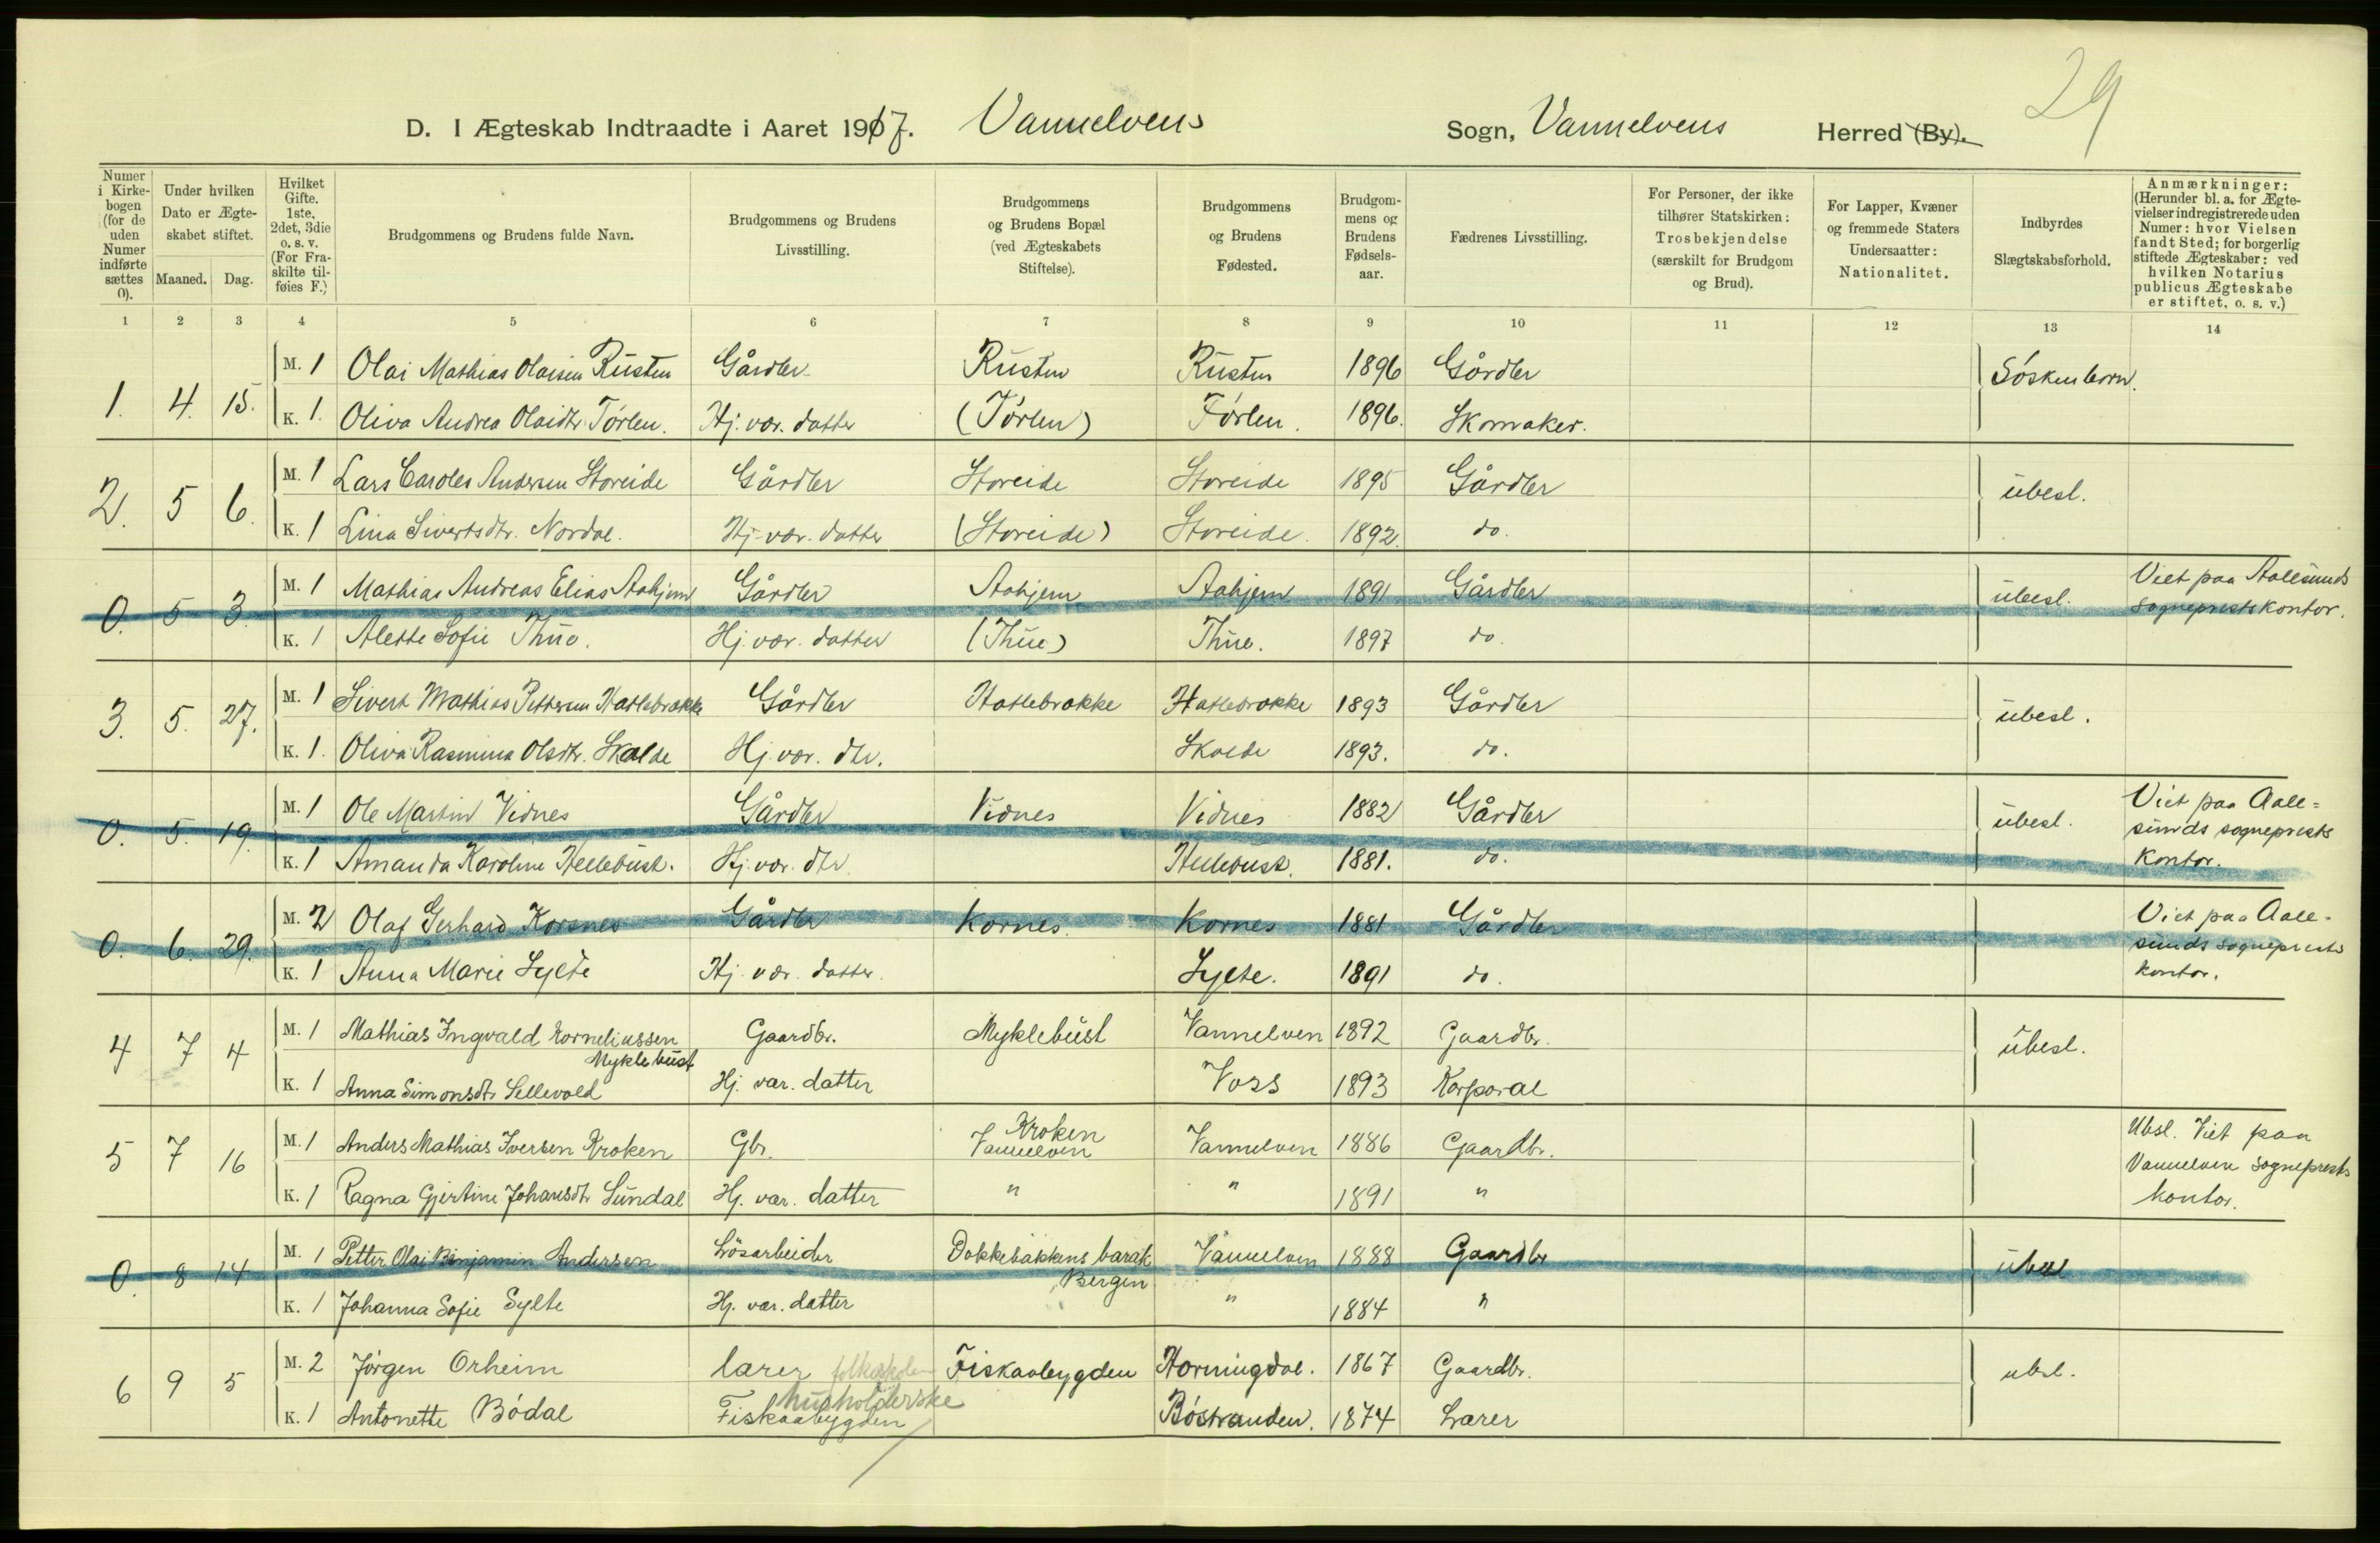 29
D. I Ægteskab Indtraadte i Aaret 1917. Vannelvens Sogn, Vannelvens Herred (By).
Numer i Kirkebogen (for de uden Numer indførte sættes 0).
Under hvilken Dato er Ægteskabet stiftet.
Maaned. Dag.
Hvilket Gifte. 1ste, 2det, 3die o. s. v. (For Fraskilte tilføies F.)
Brudgommens og Brudens fulde Navn.
Brudgommens og Brudens Livsstilling.
Brudgommens og Brudens Bopæl (ved Ægteskabets Stiftelse).
Brudgommens og Brudens Fødested.
Brudgommens og Brudens Fødselsaar.
Fædrenes Livsstilling.
For Personer, der ikke tilhører Statskirken: Trosbekjendelse (særskilt for Brudgom og Brud).
For Lapper, Kvæner og fremmede Staters Undersaatter: Nationalitet.
Indbyrdes Slægtskabsforhold.
Anmærkninger: (Herunder bl. a. for Ægtevielser indregistrerede uden Numer: hvor Vielsen fandt Sted; for borgerlig stiftede Ægteskaber: ved hvilken Notarius publicus Ægteskabe er stiftet, o. s. v.)
1 2 3 4 5 6 7 8 9 10 11 12 13 14
1. 4. 15. M. 1 Olai Mathias Olaisen Rusten Gårdbr. Rusten Rusten 1896 Gårdbr Søskenbarn.
K. 1. Oliva Andrea Olaidtr. Tørlen. Hj. vær. datter (Tørlen) Tørlen. 1896. Skomaker.
2. 5 6. M. 1 Lars Caroles Andersen Storeide Gårdbr Storeide Storeide 1895 Gårdbr ubesl.
K. 1 Lina Sivertsdtr. Nordal. Hj. vær. datter (Storeide) Storeide. 1892. do.
0. 5 3. M. 1 Mathias Andreas Elias Aahjem Gårdbr Aahjem Aahjem 1891 Gårdbr ubesl. Viet paa Aalesunds sogneprestskontor.
K. 1 Alette Sofie Thue. Hj. vær. datter (Thue) Thue. 1897 do.
3. 5. 27. M. 1 Sivert Mathias Pettersen Hatlebrække Gårdbr Hatlebrække Hatlebrække 1893 Gårdbr ubesl.
K. 1. Oliva Rasmina Olsdtr. Skalde Hj. vær. dtr. Skalde 1893. do.
0. 5. 19. M. 1 Ole Martin Vidnes Gårdbr Vidnes Vidnes 1882 Gårdbr ubesl. Viet paa Aalesunds sogneprests kontor.
K. 1 Amanda Karoline Hellebust. Hj. vær. dtr. Hellebust. 1881. do.
0. 6. 29. M. 2 Olaf Gerhard Korsnes Gårdbr Kornes. Kornes 1881 Gårdbr Viet paa Aalesunds sogneprests kontor.
K. 1 Anna Marie Sylte Hj. vær. datter. Sylte. 1891 do.
4 7 4 M. 1 Mathias Ingvald Korneliussen Myklebust Gaardbr. Myklebust Vannelven 1892 Gaardbr. ubesl.
K. 1 Anna Simonsdtr Sellevold Hj. vær. datter Voss 1893 Korporal
5 7 16 M. 1 Anders Mathias Iversen Kroken Gbr. Kroken Vannelven Vannelven 1886 Gaardbr. Ubsl. Viet paa Vannelven sogneprests kontor.
K. 1 Ragna Gjertine Johansdtr Sundal Hj. vær. datter " " 1891 "
0. 8 14 M. 1 Petter Olai Benjamin Andersen Løsarbeider Dokkebakkens barak Bergen Vannelven 1888 Gaardbr ubesl
K. 1 Johanna Sofie Sylte Hj. vær. datter " 1884 "
6 9 5 M. 2 Jørgen Orheim lærer folkeskolen Fiskaabygden Horningdal. 1867 Gaardbr. ubsl.
K. 1 Antonette Bødal husholderske Fiskaabygden Bøstranden. 1874 Lærer